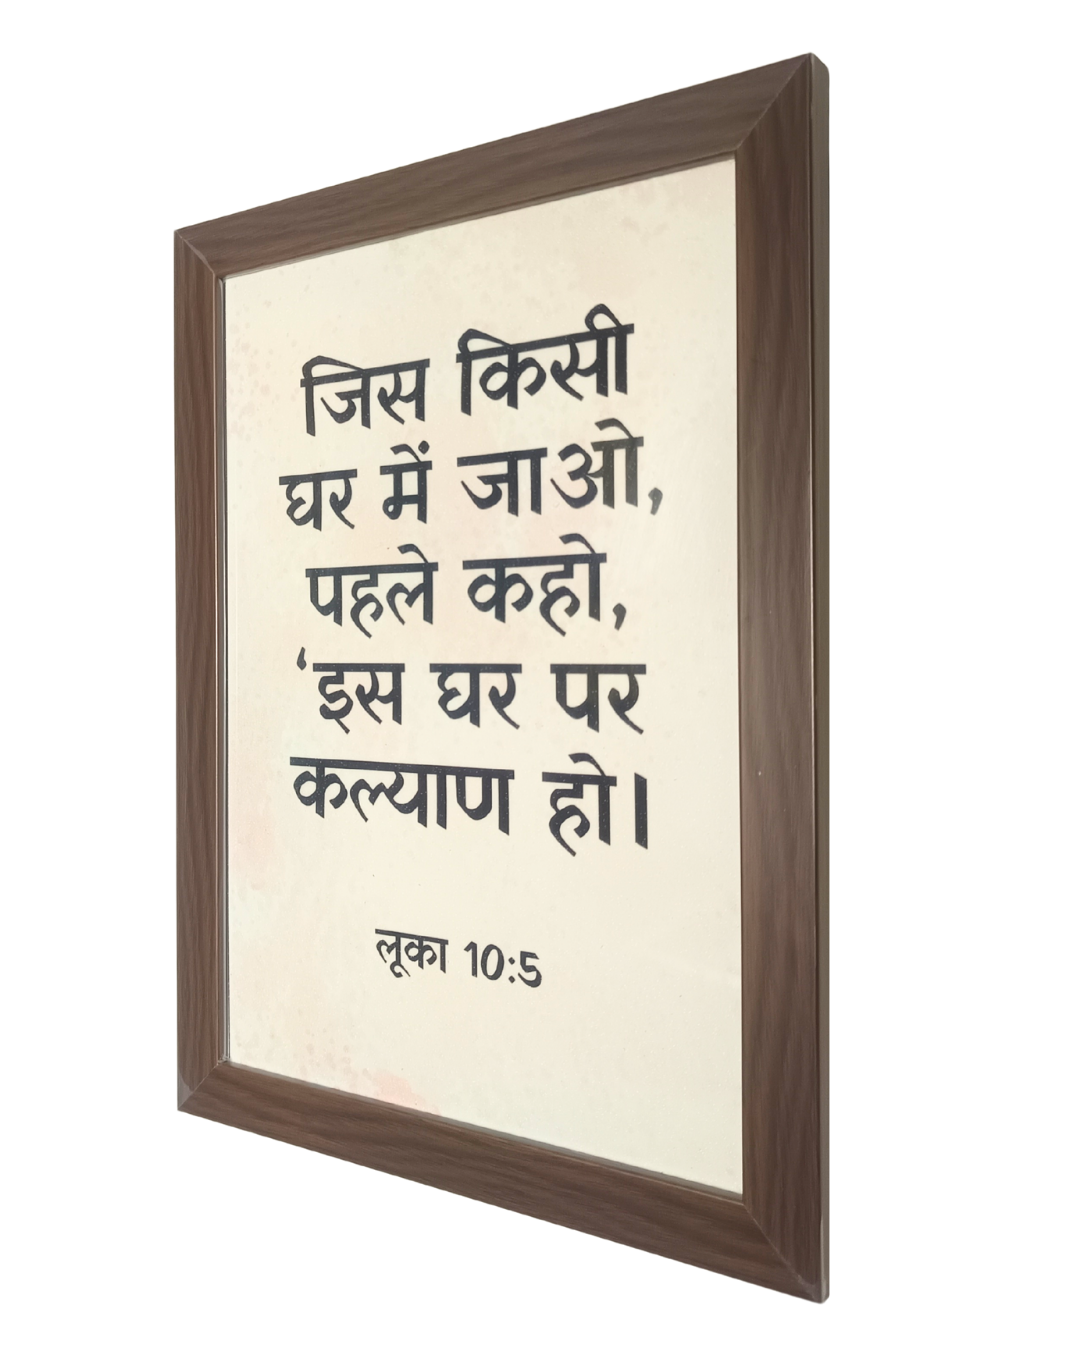 जिस किसी
घर में जाओ,
पहले कहो,
‘इस घर पर
कल्याण हो।
लूका 10:5